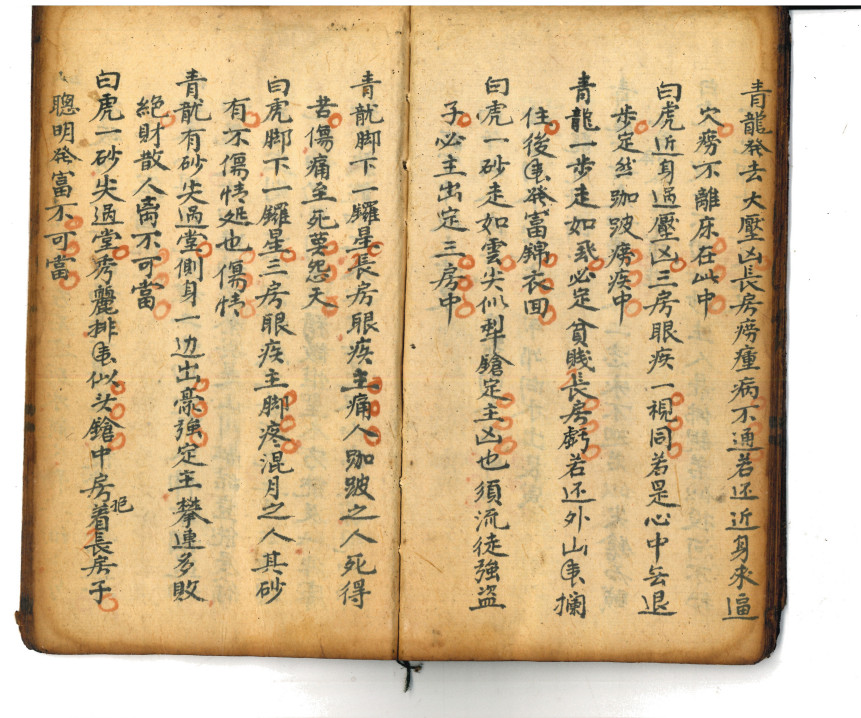 青龍發去大壓凶長房癆瘇病不通若还近身来逼
穴癆不離床在此中
白虎近身過壓凶三房眼疾一視同若是心中无退
步定然跏跛癆疾中
青龍一步走如飛必定貧賤長房虧若还外山来攔
住後来發富錦衣囬
白虎一砂走如雲尖似犁鎗定主凶也須流徒強盜
子必主出定三房中
青龍脚下一羅星長房眼疾主痛人跏跛之人死得
苦傷痛至死莫怨天
白虎脚下一羅星三房眼疾主脚疼混月之人其砂
有不傷情処也傷情
青龍有砂尖過堂側身一边出豪強定主攀連多敗
絕財散人离不可當
白虎一砂尖過堂秀麗排来似尖鎗中房着長房子
聰明發富不可當